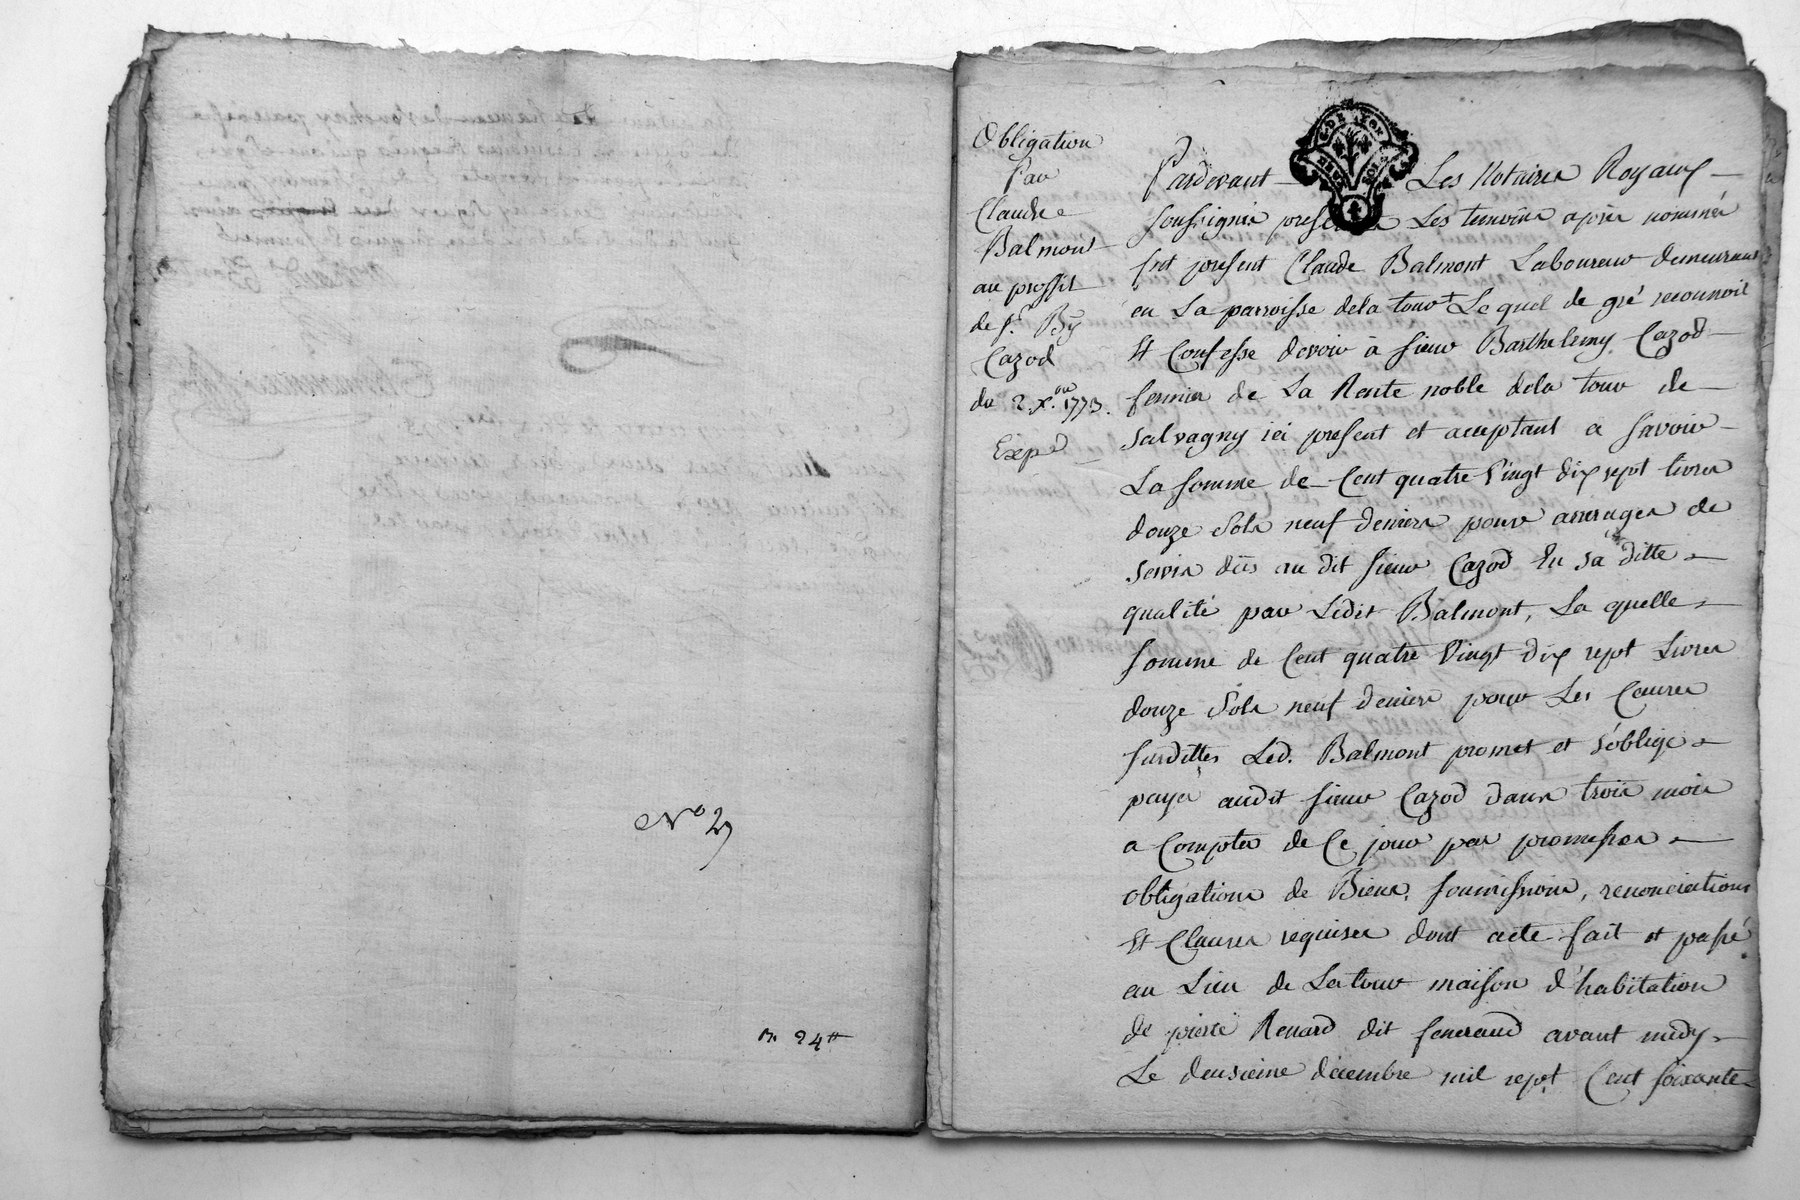 No 2
n. 24tt
Obligation
par
Claude
Balmont
au proffit
de sr. By
Cazod
du 2 Xbre. 1773.
Expé
G. DE LYON
DEUX SOLS
Pardevant Les Notaires Royaux
soussignés presents Les temoins après nommés
fut present Claude Balmont Laboureur demeurant
en La parroisse dela tour + Le quel de gré reconnoit
Et Confesse devoir à sieur Barthelemy Cazod
fermier de La Rente noble dela tour de
Salvagny ici present et acceptant a savoir
La somme de Cent quatre Vingt dix sept livres
douze Sols neuf deniers pour arrerages de
servis dûs au dit sieur Cazod En sa ditte
qualité par Ledit Balmont, La quelle
somme de Cent quatre Vingt dix sept Livres
douze Sols neuf deniers pour Les Causes
susdittes Led. Balmont promet et s'oblige
payer audit sieur Cazod dans trois mois
a Compter de Ce jour par promesses
obligations de Biens, soumissions, renonciations
Et Clauses requises dont acte fait et passé
au Lieu de La tour maison d'habitation
de pierre Renard dit feneraud avant midy
Le deusieme décembre mil sept Cent soixante